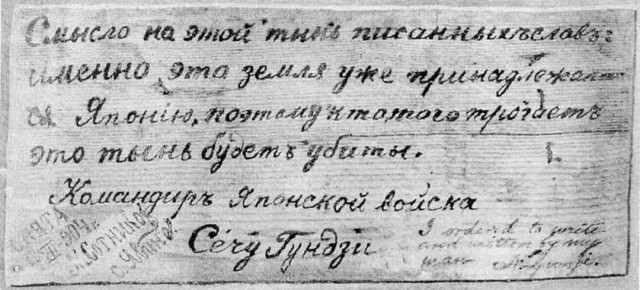 Смысло на этой тынь писанныхъ словъ:
именно эта земля уже принадлежает-
ся Японію, поэтому кто того трогаетъ
это тынь будетъ убиты.
Командиръ Японской войска
Сечу Гундзи
I ordered to write
and written by my
man